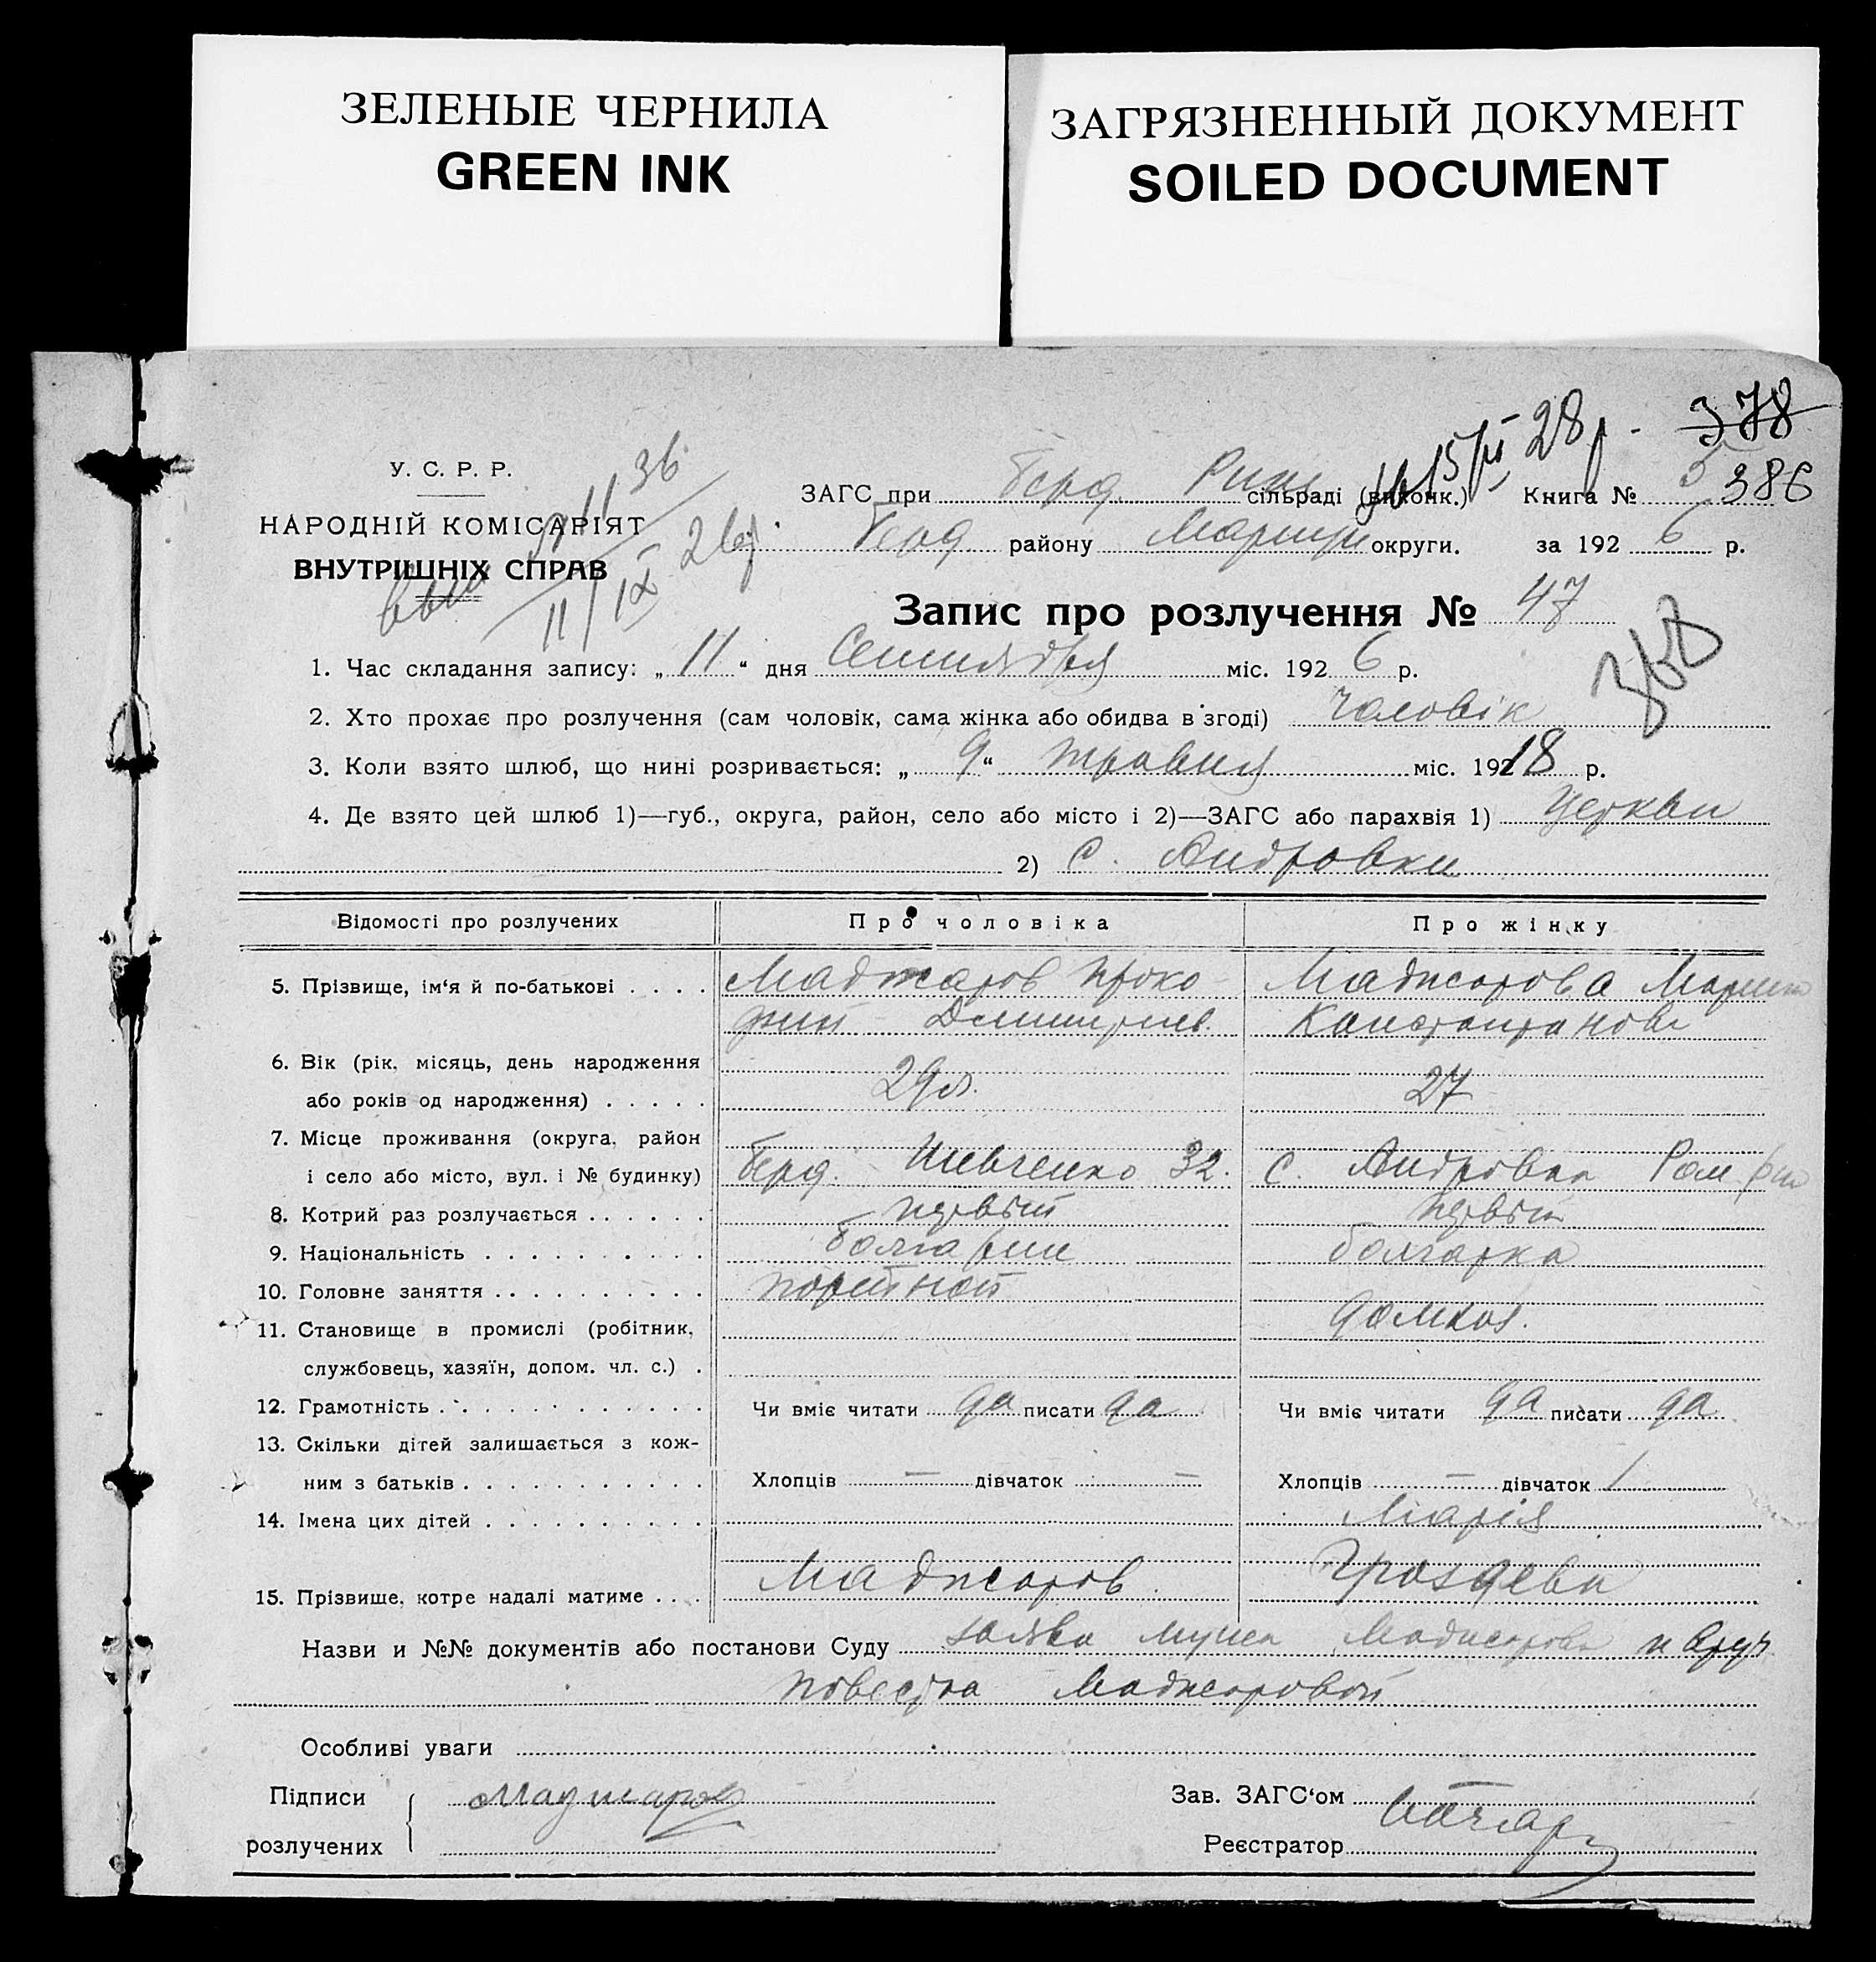 ЗЕЛЕНЫЕ ЧЕРНИЛА
GREEN INK
ЗАГРЯЗНЕННЫЙ ДОКУМЕНТ
SOILED DOCUMENT
28р. 378
У. С. Р. Р.
ЗАГС при Берд. сільраді (виконк.) Книга № 5 386
НАРОДНІЙ КОМІСАРІЯТ
Берд району Маріуп округи. за 1926 р.
ВНУТРІШНІХ СПРАВ
11/IX 26
Запис про розлучення № 47
1. Час складання запису: „ 11 “ дня Сентября міс. 1926 р.
2. Хто прохає про розлучення (сам чоловік, сама жінка або обидва в згоді) чоловік
3. Коли взято шлюб, що нині розривається: „ 9 “ травня міс. 1918 р.
4. Де взято цей шлюб 1)—губ., округа, район, село або місто і 2)—ЗАГС або парахвія 1) Церкви
2) с. Андровки
Відомості про розлучених Про чоловіка Про жінку
5. Прізвище, ім‘я й по-батькові . . . . Маджаров Проко- Маджарова Мария
фий Дмитриев. Константинов
6. Вік (рік, місяць, день народження
або років од народження) . . . . . 29 л. 27
7. Місце проживання (округа, район
і село або місто, вул. і № будинку) Берд. Шевченко 32. с. Андровка
8. Котрий раз розлучається . . . . . . первый первый
9. Національність . . . . . . . . . . болгарин болгарка
10. Головне заняття . . . . . . . . . . портной
11. Становище в промислі (робітник, домхоз.
службовець, хазяїн, допом. чл. с.) .
12. Грамотність . . . . . . . . . . . Чи вміє читати да писати да Чи вміє читати да писати да
13. Скільки дітей залишається з кож-
ним з батьків . . . . . . . . . . . Хлопців — дівчаток — Хлопців — дівчаток 1
14. Імена цих дітей . . . . . . . . . . Марія
15. Прізвище, котре надалі матиме . . . Маджаров. Гроздева
Назви и №№ документів або постанови Суду заява мужа Маджарова и
повестка Маджаровой
Особливі уваги
Підписи Маджаров Зав. ЗАГС‘ом
розлучених Реєстратор